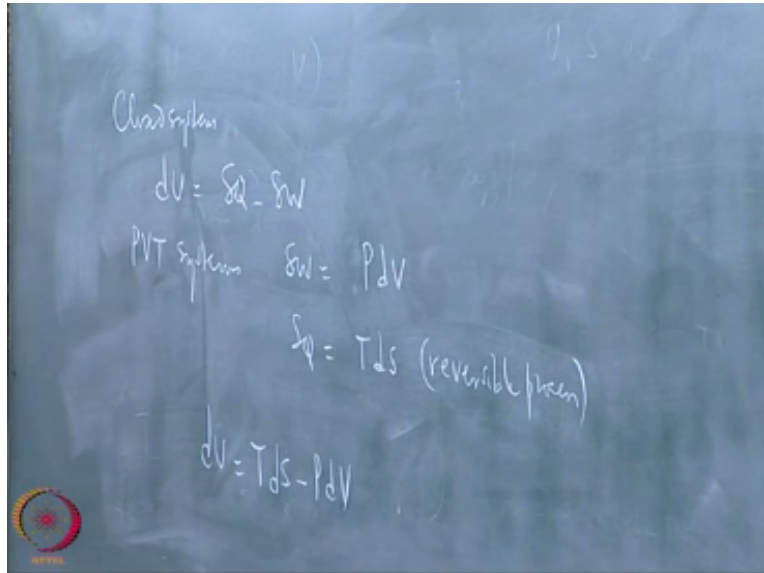 V)
U, S
Closed system
dU = δQ - δW
PVT systems δW = PdV
δQ = Tds (reversible process)
dU = Tds - PdV
NPTEL